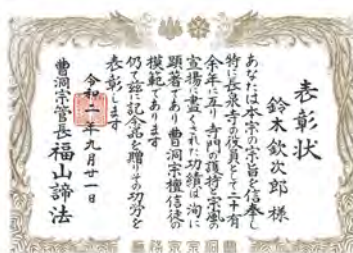 表彰状
鈴木欽次郎 様
あなたは本宗の宗旨を信奉し
特に長泉寺の役員として二十有
余年に亙り寺門の護持と宗風の
宣揚に尽くされた功績は洵に
顕著であり曹洞宗檀信徒の
模範であります
仍て茲に記念品を贈りその功労を
表彰します
令和二年九月廿一日
曹洞宗管長 福山諦法